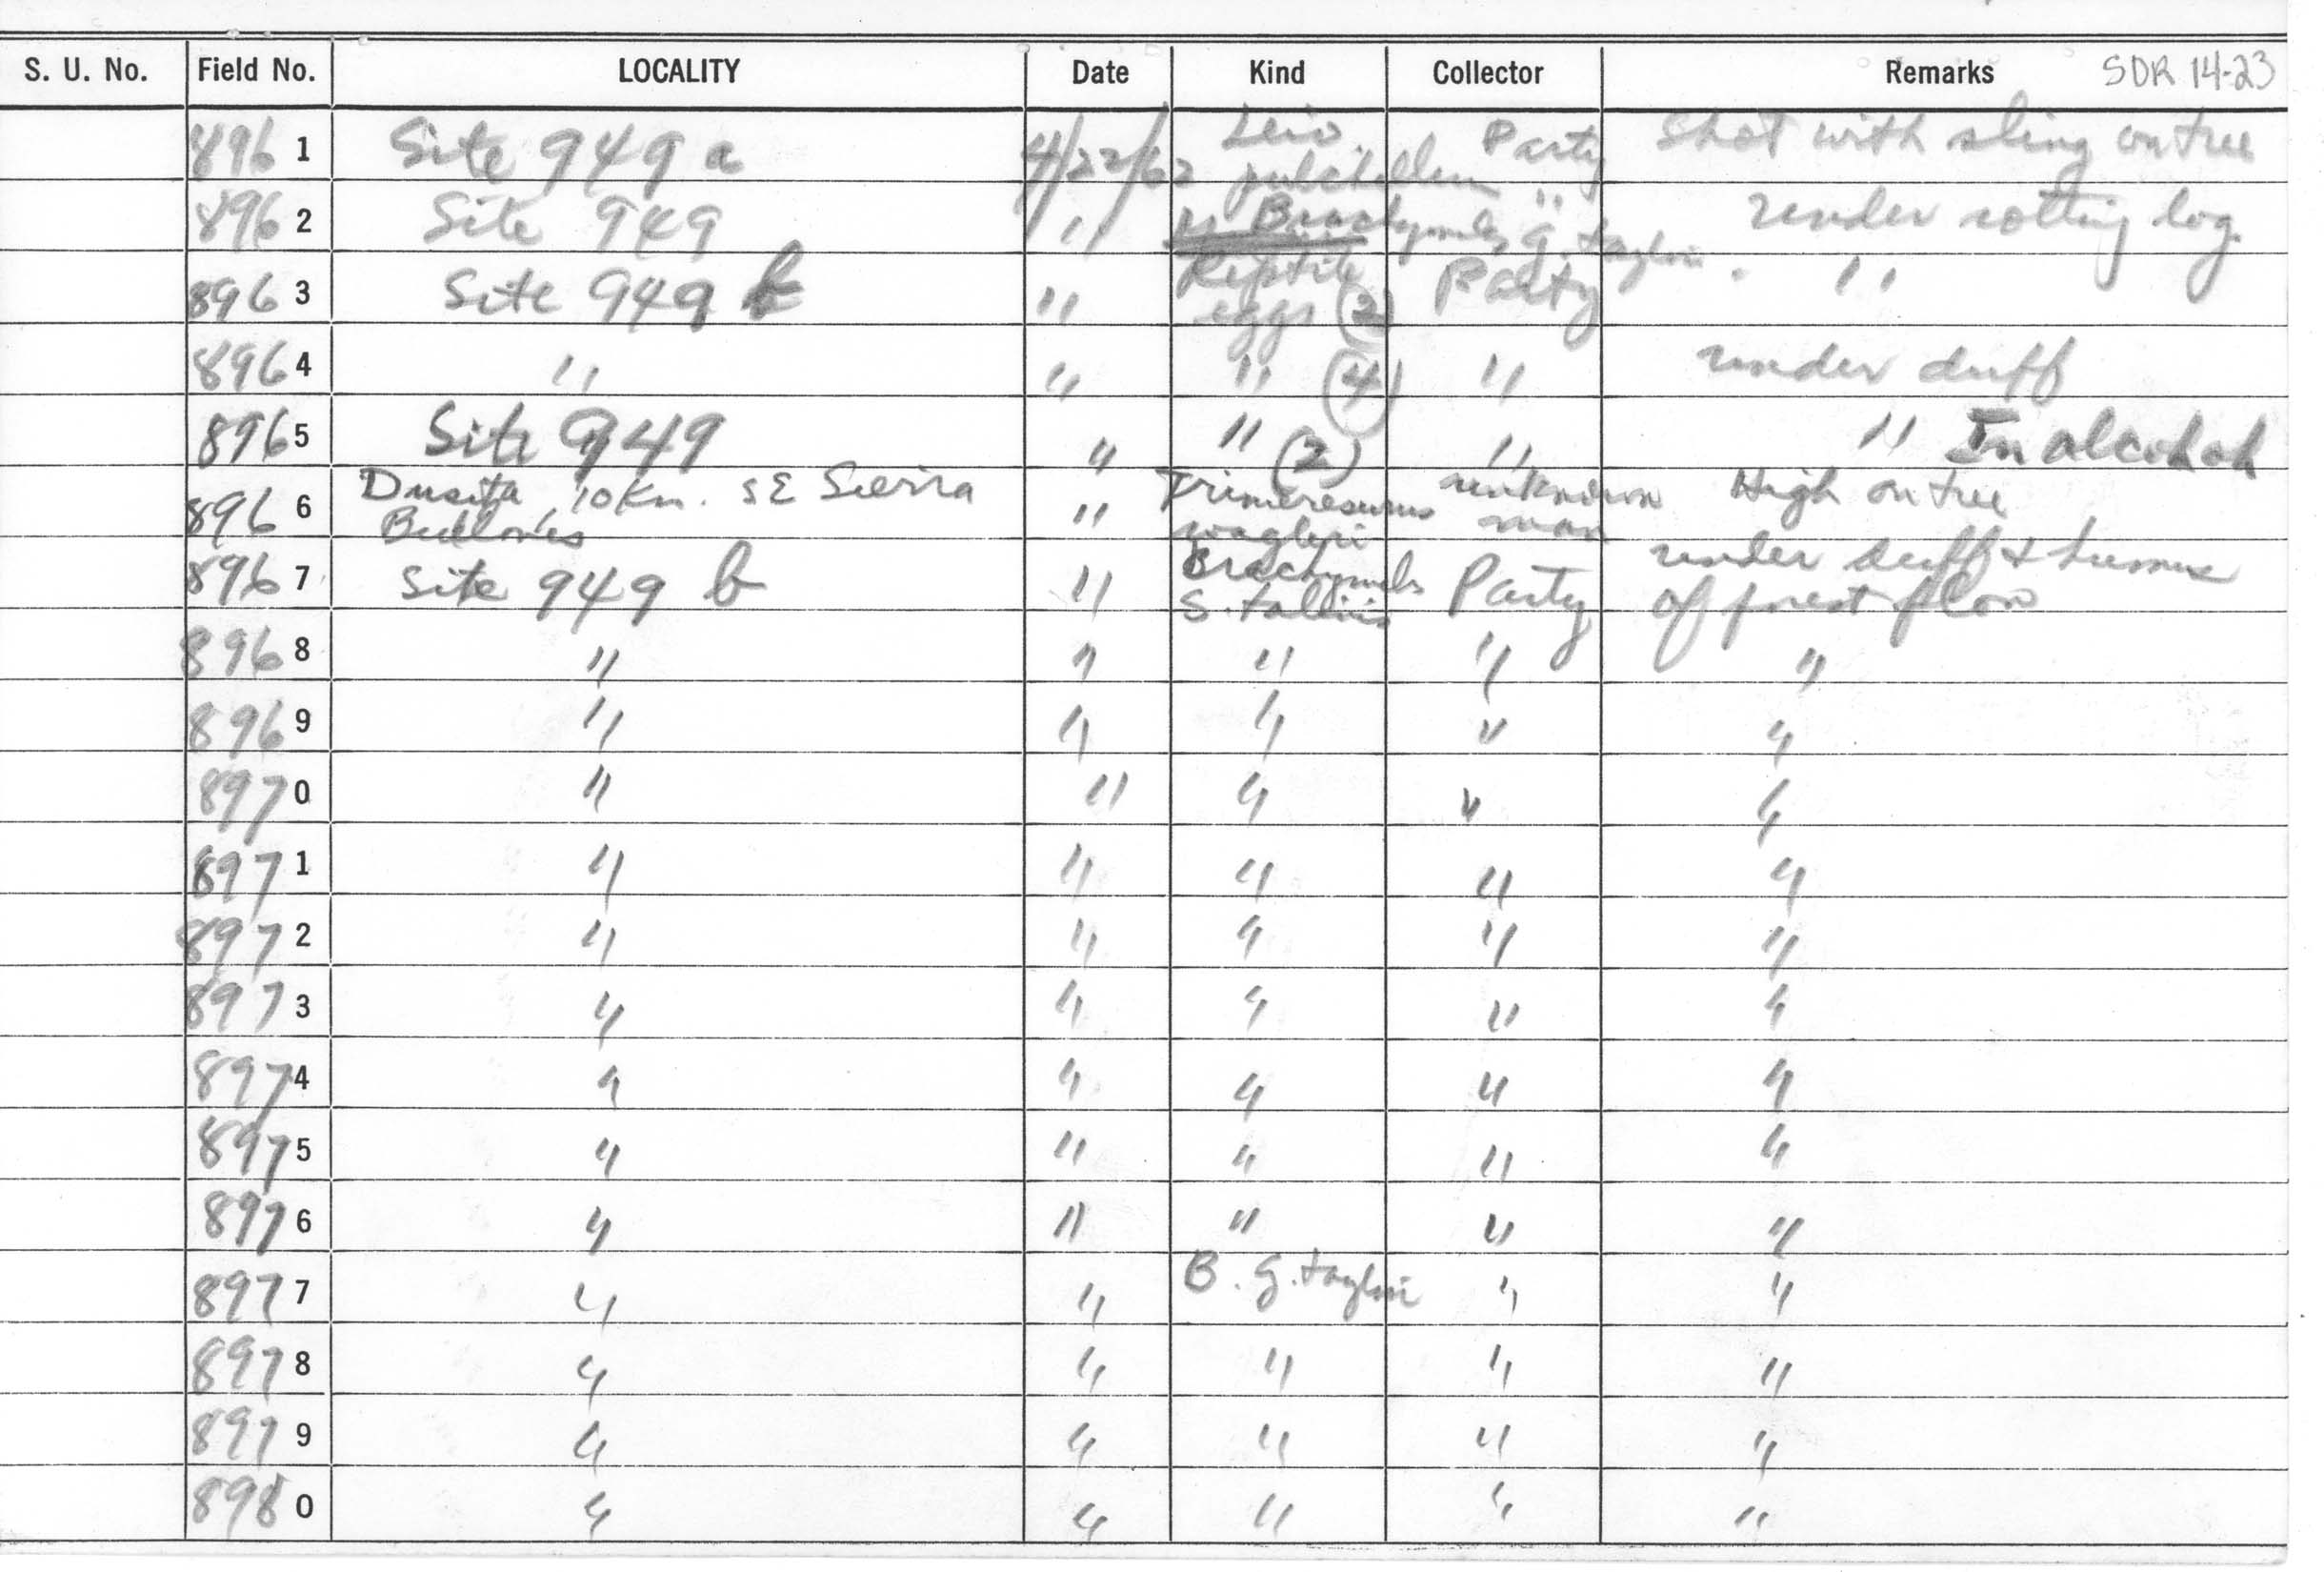 S. U. No. Field No. LOCALITY Date Kind Collector Remarks SDR 14-23
8961 Site 949 a 4/22/62 Leio. pulchellum Party Shot with sling on tree
8962 Site 949 " Brachymeles g. taylori " under rotting log.
8963 Site 949 b " Reptile eggs (2) Party "
8964 " " " (4) " under duff
8965 Site 949 " " (2) " " In alcohol
8966 Dusita, 10 Km. SE Sierra Bullones " Trimeresurus wagleri unknown man High on tree
8967 Site 949 b " Brachymeles Party under duff & humus of forest floor
8968 " " " " "
8969 " " " " "
8970 " " " " "
8971 " " " " "
8972 " " " " "
8973 " " " " "
8974 " " " " "
8975 " " " " "
8976 " " " " "
8977 " " B. g. taylori " "
8978 " " " " "
8979 " " " " "
8980 " " " " "